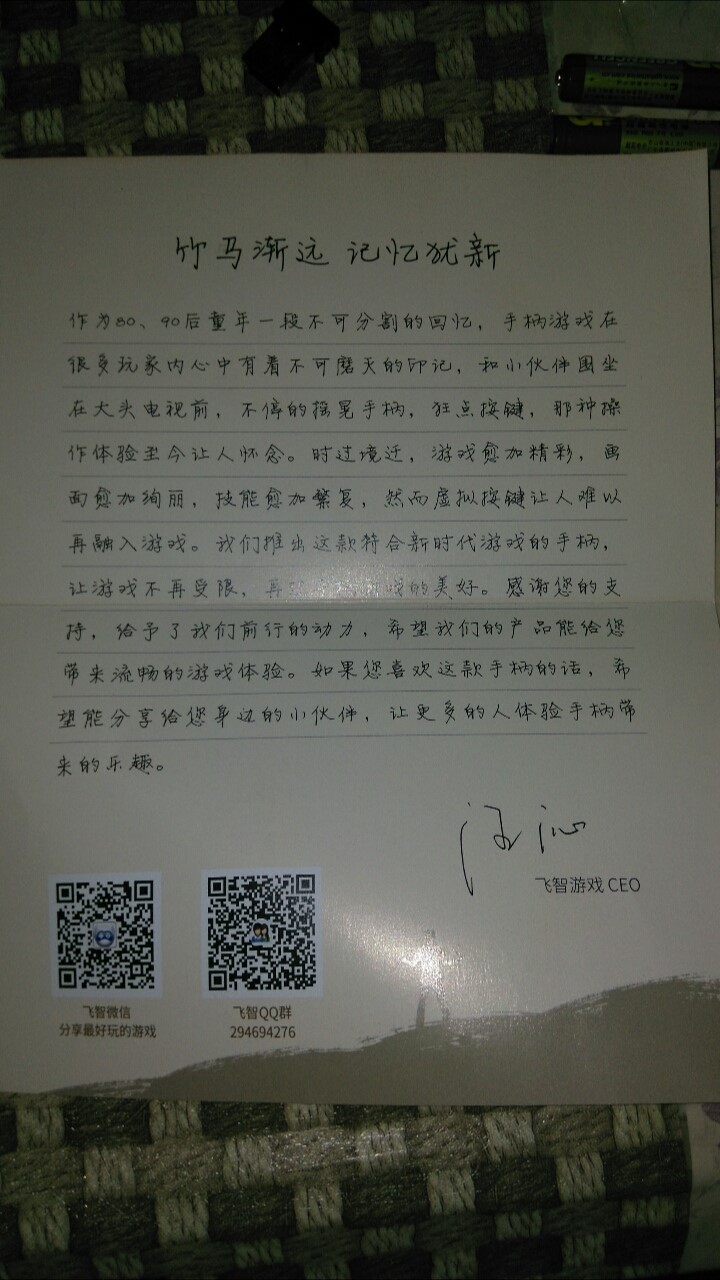 竹马渐远 记忆犹新
作为80、90后童年一段不可分割的回忆，手柄游戏在
很多玩家内心中有着不可磨灭的印记，和小伙伴围坐
在大头电视前，不停的摇晃手柄，狂点按键，那种操
作体验至今让人怀念。时过境迁，游戏愈加精彩，画
面愈加绚丽，技能愈加繁复，然而虚拟按键让人难以
再融入游戏。我们推出这款符合新时代游戏的手柄，
让游戏不再受限，再的美好。感谢您的支
持，给予了我们前行的动力，希望我们的产品能给您
带来流畅的游戏体验。如果您喜欢这款手柄的话，希
望能分享给您身边的小伙伴，让更多的人体验手柄带
来的乐趣。
飞智游戏 CEO
飞智微信
分享最好玩的游戏
飞智QQ群
294694276